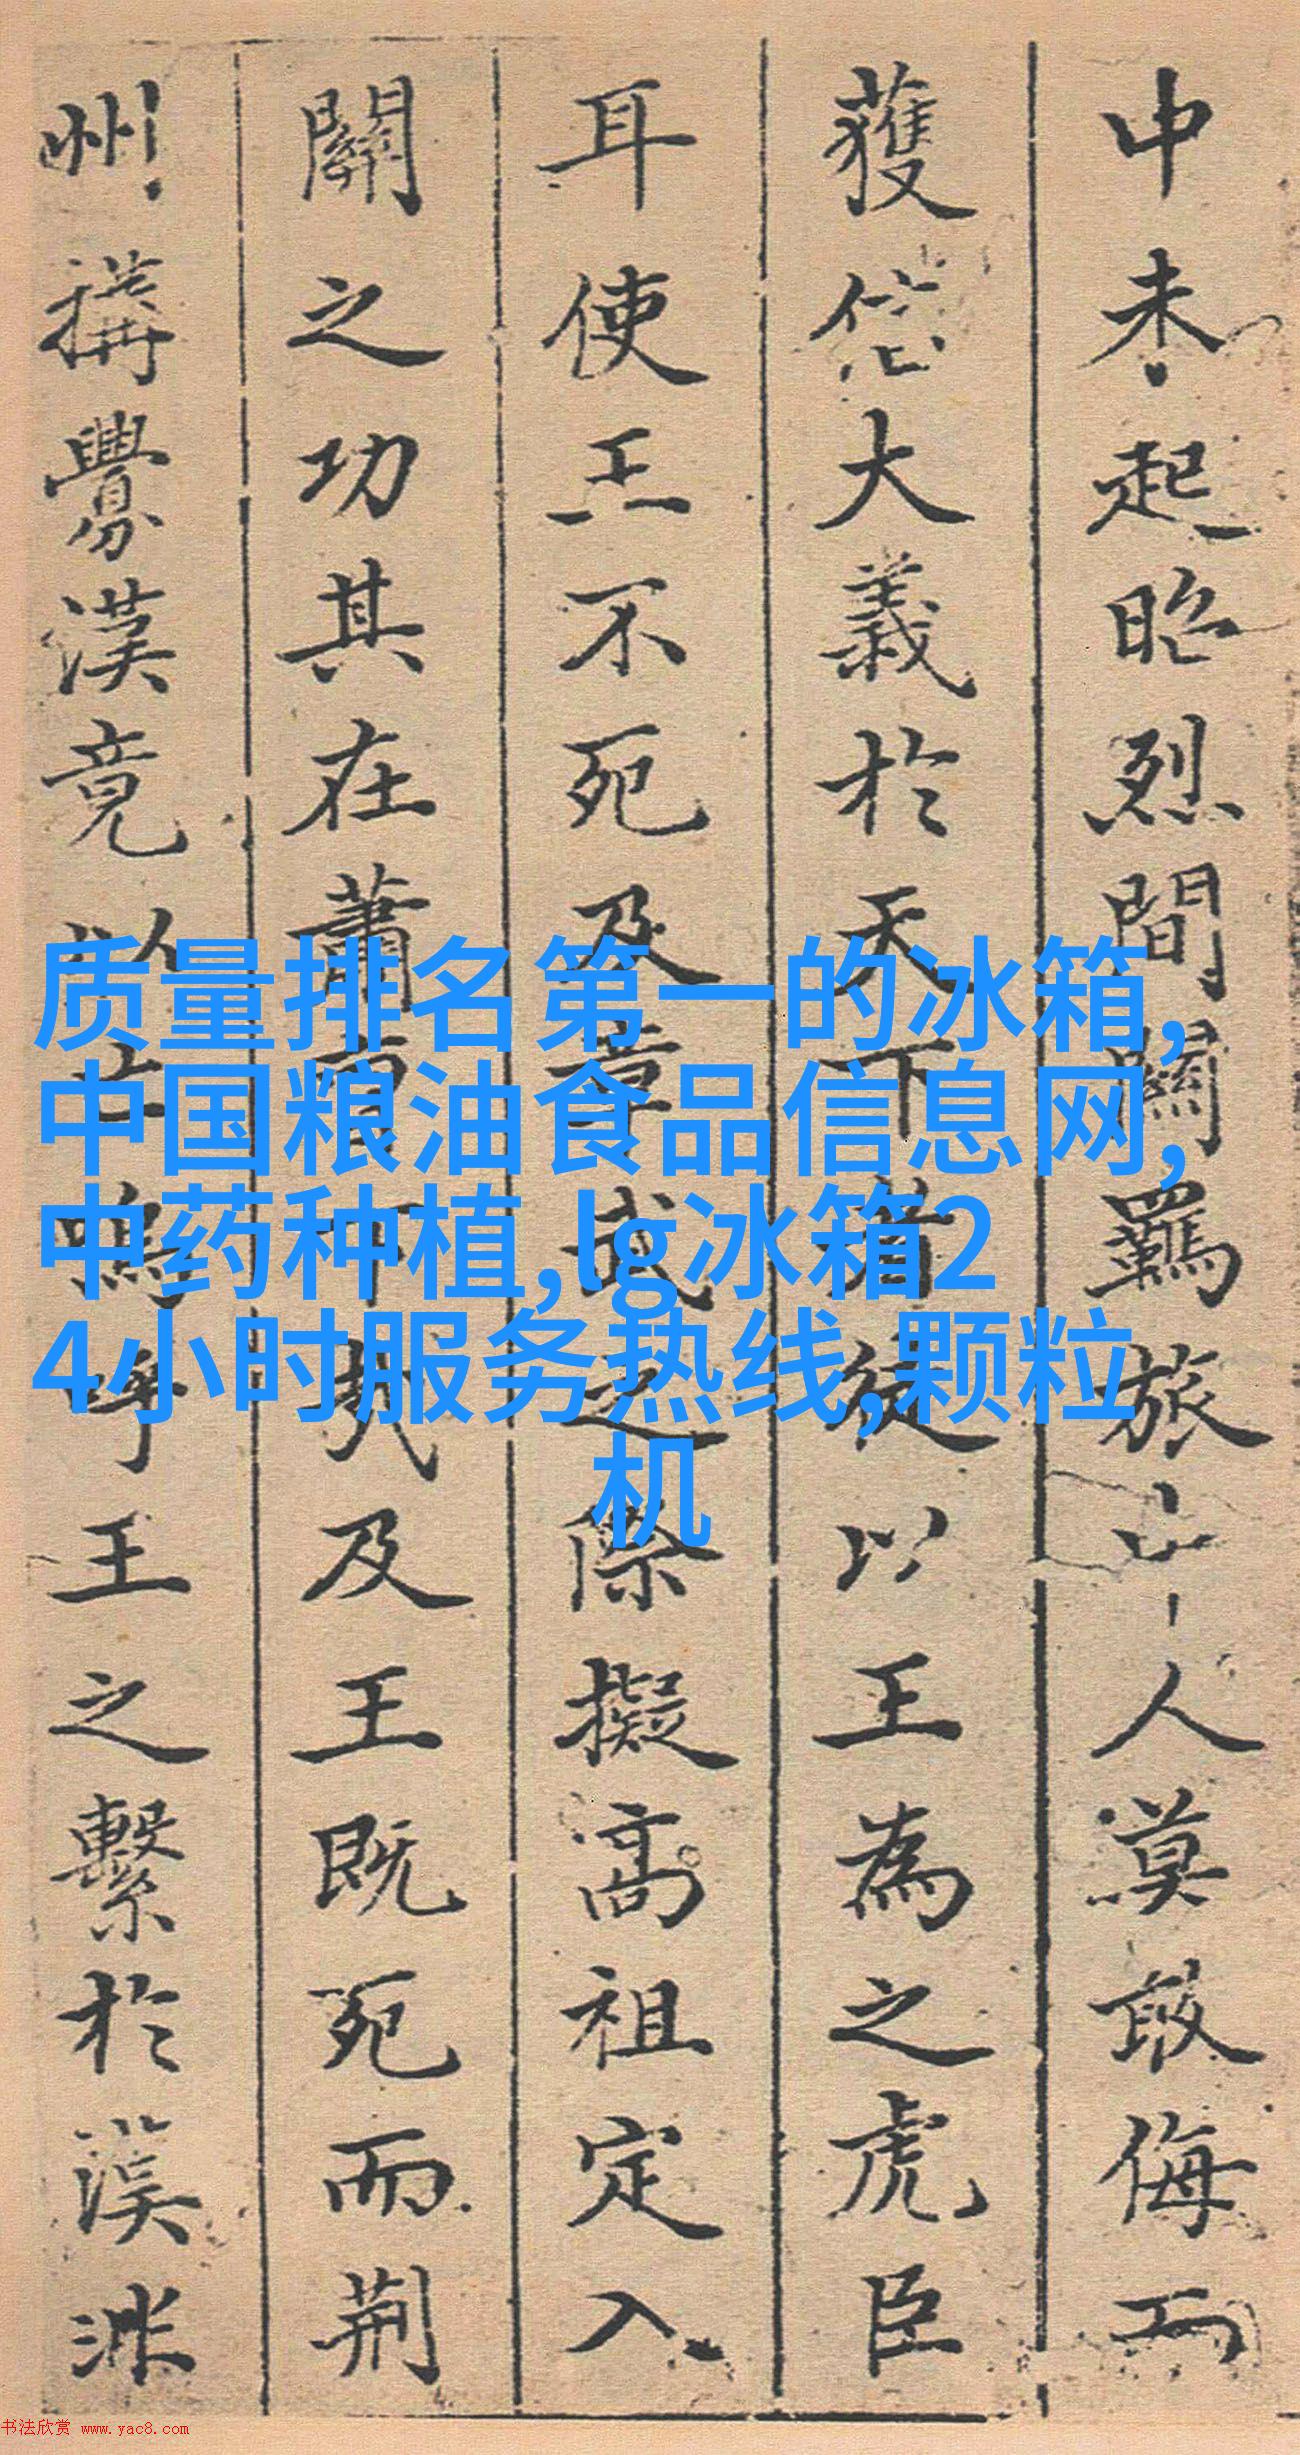 中未起昭烈間關羈旅人莫敢侮而
獲信大義於天下者徒以王為之虎臣
耳使王不死及章武之際擬高祖定入
關之功其在蕭曹下哉及王既死而荆
州搆釁漢竟以亡嗚呼王之繫於漢
质量排名第一的冰箱,
中国粮油食品信息网,
中药种植,lg冰箱2
4小时服务热线,颗粒
机
书法欣赏 www.yac8.com